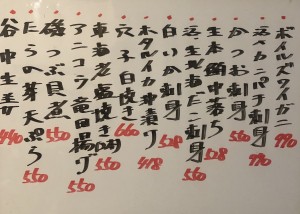 ボイルズワイガニ 990
活〆カンパチ刺身 990
かつお刺身 550
生本鮪中落ち 528
活〆生真だこ刺身
白いか刺身 528
ホタルイカ沖漬け 418
穴子白焼き 660
東海老塩焼き 550
アンコウ竜田揚げ 550
磯つぶ貝煮 550
たらの芽天ぷら 550
谷中生姜 440